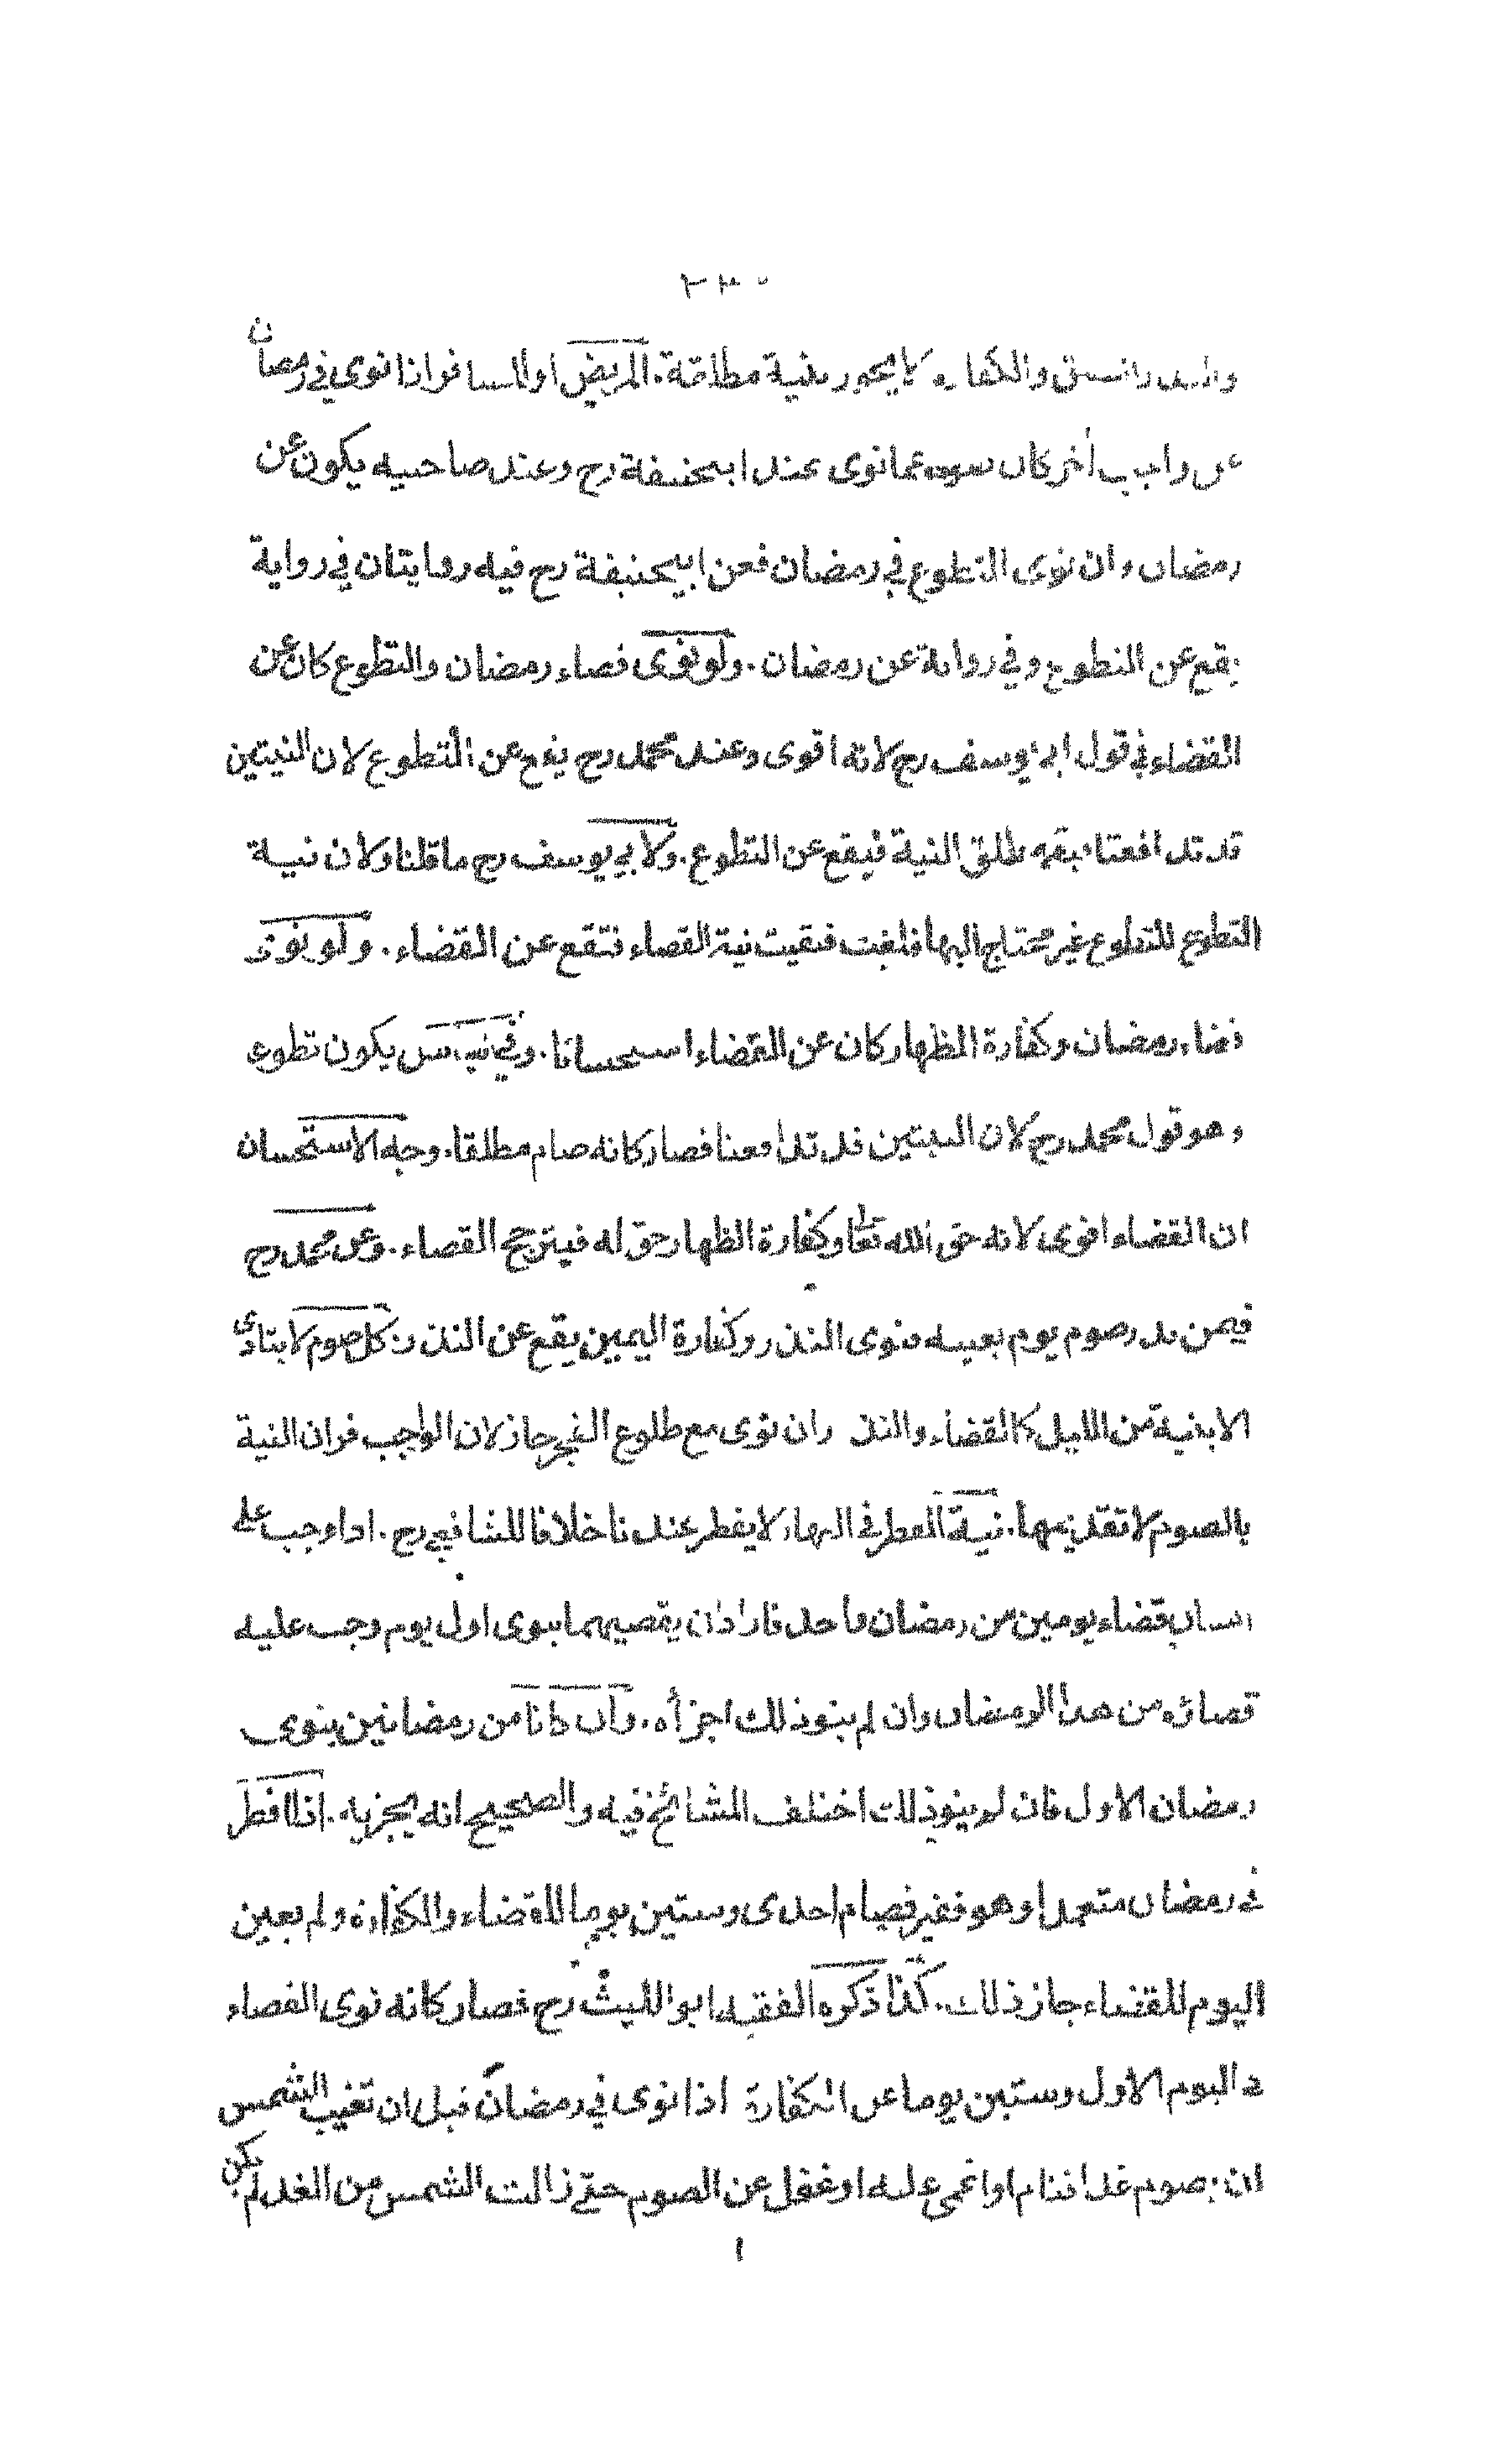 والكفارة لا يجوز بنية مطلقة. المريض او المسافر اذا نوى في رمضان
عن واجب أخر كان صومه عما نوى عند ابيحنيفة رح وعند صاحبيه يكون عن
رمضان وان نوى التطوع في رمضان فعن ابيحنيفة رح فيه روايتان في رواية
يقع عن التطوع وفي رواية عن رمضان. ولو نوى قضاء رمضان والتطوع كان عن
القضاء في قول ابي يوسف رح لانه اقوى وعند محمد رح يقع عن التطوع لان النيتين
قد تدافعتا فبقي مطلق النية فيقع عن التطوع. ولابي يوسف رح ما قلنا ولان نية
التطوع للتطوع غير محتاج اليها فلغت فبقيت نية القضاء فتقع عن القضاء. ولو نوى
قضاء رمضان وكفارة الظهار كان عن القضاء استحسانا. وفي القياس يكون تطوعا
وهو قول محمد رح لان النيتين قد تدافعتا فصار كانه صام مطلقا. وجه الاستحسان
ان القضاء اقوى لانه حق الله تعا وكفارة الظهار حق له فيترجح القضاء. وعن محمد رح
فيمن نذر صوم يوم بعينه فنوى النذر وكفارة اليمين يقع عن النذر. كل صوم لا يتادى
الا بنية من الليل كالقضاء والنذر ان نوى مع طلوع الفجر جاز لان الواجب قران النية
بالصوم لا تقديمها. نية الفطر في النهار لا يفطر عندنا خلافا للشافعي رح. اذا وجب على
انسان قضاء يومين من رمضان واحد فاراد ان يقضيهما ينوى اول يوم وجب عليه
قضاؤه من هذا الرمضان وان لم ينو ذلك اجزأه. وان كانا من رمضانين ينوى
رمضان الاول فان لم ينو ذلك اختلف المشائخ فيه والصحيح انه يجزيه. اذا افطر
في رمضان متعمدا وهو فقير فصام احدى وستين يوما للقضاء والكفارة ولم يعين
اليوم للقضاء جاز ذلك. كذا ذكره الفقيه ابو الليث رح فصار كانه نوى القضاء
في اليوم الاول وستين يوما عن الكفارة اذا نوى في رمضان قبل ان تغيب الشمس
ان يصوم غدا فنام او اغمى عليه او غفل عن الصوم حتى زالت الشمس من الغد لم يكن
١